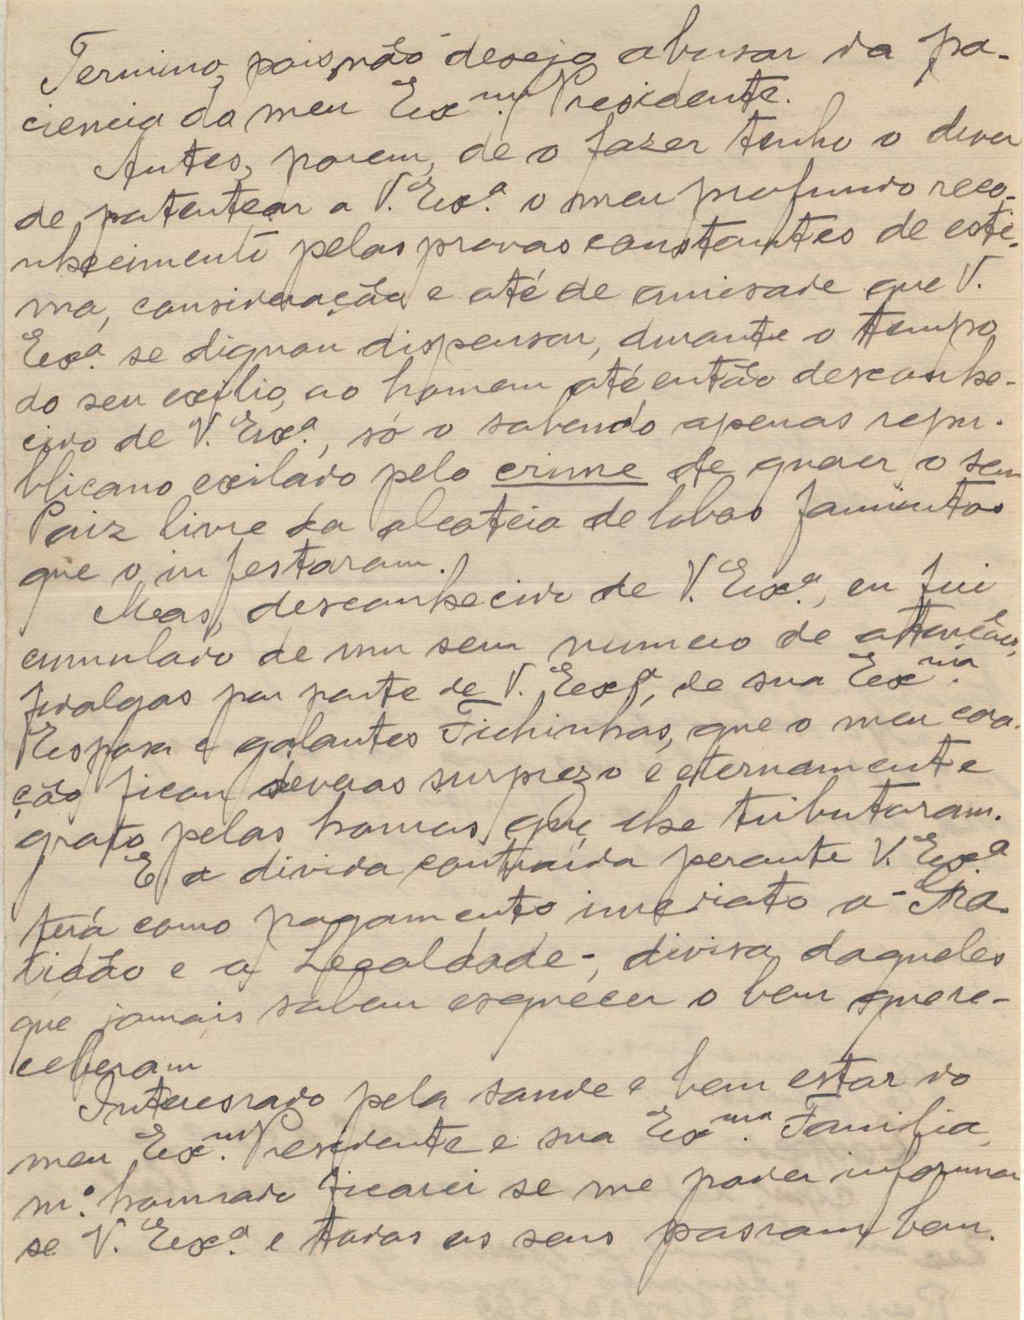 Termino, pois não desejo abusar da pa-
ciencia do meu Exmo. Presidente.
Antes, porem, de o fazer tenho o dever
de patentear a V. Exª. o meu profundo reco-
nhecimento pelas provas constantes de esti-
ma, consideração e até de amisade que V.
Exª. se dignou dispensar, durante o tempo
do seu exilio, ao homem até então desconhe-
cido de V. Exª., só o sabendo apenas repu-
blicano exilado pelo crime de querer o seu
Paiz livre da alcateia de lobos famintos
que o infestaram.
Mas, desconhecido de V. Exª., eu fui
cumulado de um sem numero de attenções,
fidalgas por parte de V. Exª, de sua Exma.
Esposa e galantes Fichinhas, que o meu cora-
ção ficou deveras surprezo e eternamente
grato pelas honras que lhe tributaram.
E a divida contraída perante V. Exª
terá como pagamento imediato a - Gra-
tidão e a Lealdade -, divisa daqueles
que jamais sabem esquecer o bem que re-
ceberam
Interessado pela saude e bem estar do
meu Exmo. Presidente e sua Exma. Familia,
mº. honrado ficarei se me poder informar
se V. Exª. e todos os seus passam bem.